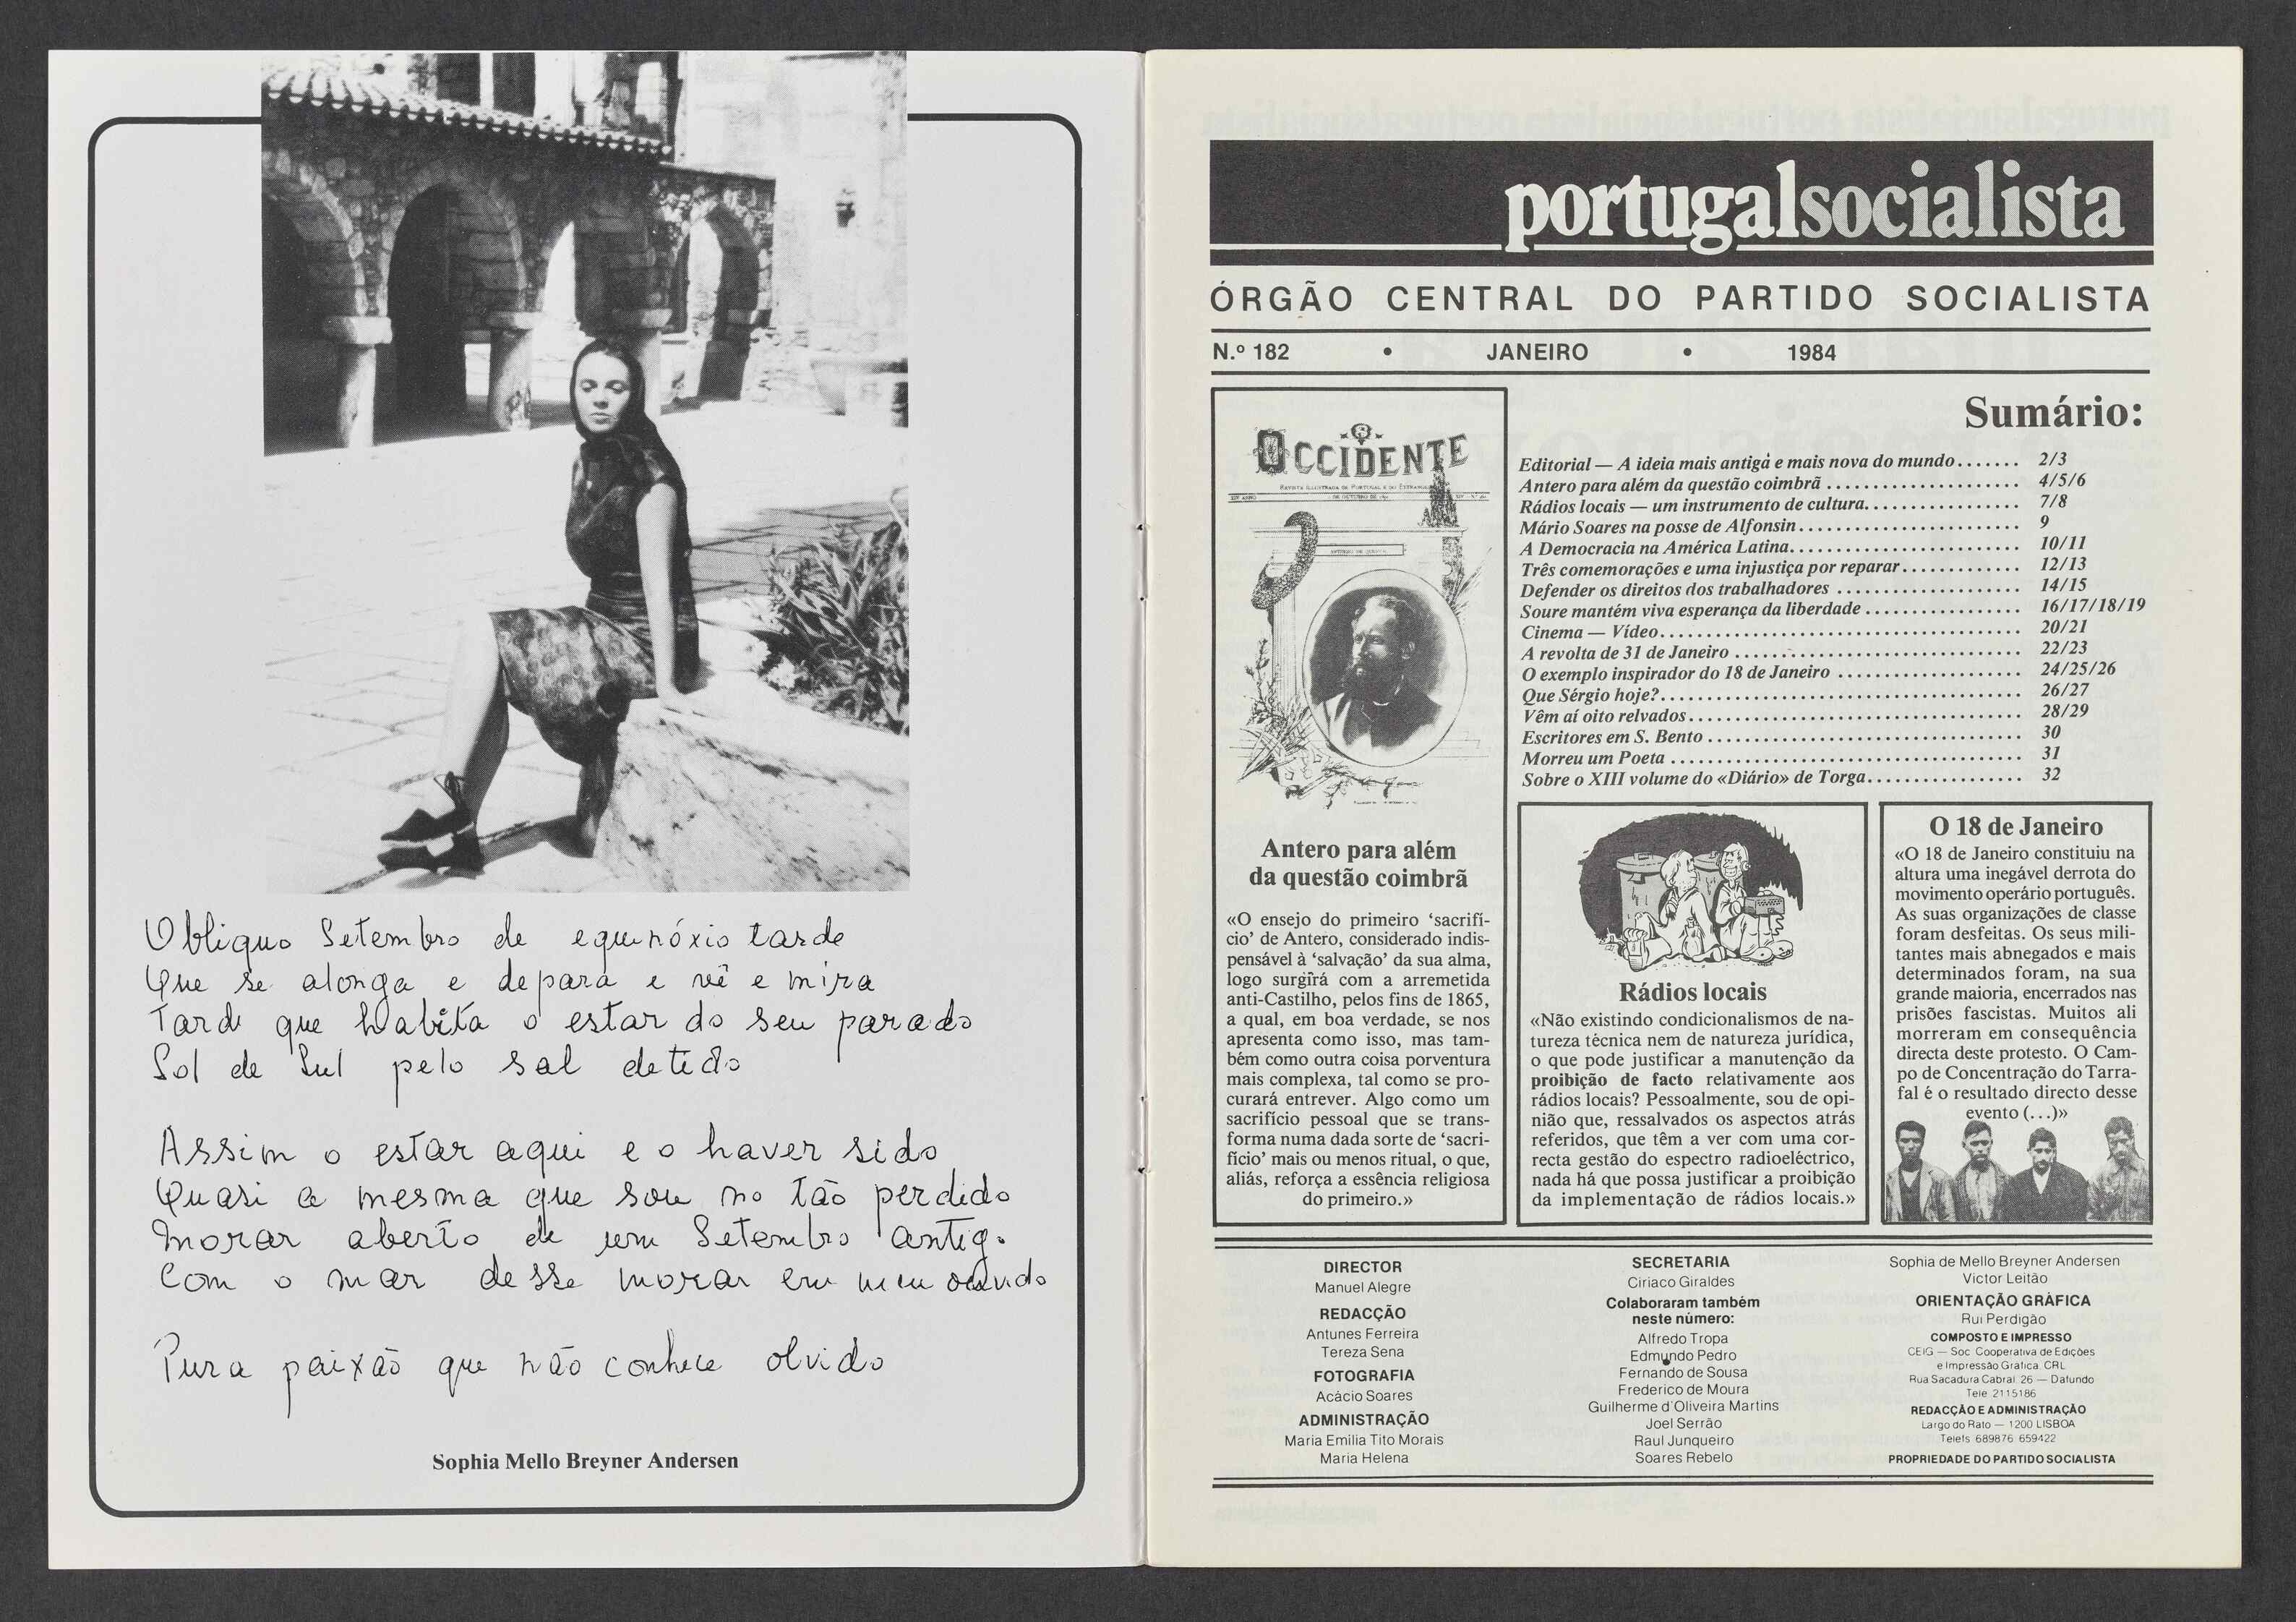 Obliquo Setembro de equinóxio tarde
Que se alonga e depara e vê e mira
Tarde que habita o estar do seu parado
Sol de Sul pelo sal detido
Assim o estar aqui e o haver sido
Quasi a mesma que sou no tão perdido
Morar aberto de um Setembro antigo
Com o mar desse morar em meu ouvido
Pura paixão que não conhece olvido
Sophia Mello Breyner Andersen
portugalsocialista
ÓRGÃO CENTRAL DO PARTIDO SOCIALISTA
N.º 182 • JANEIRO • 1984
OCCIDENTE
REVISTA ILLUSTRADA DE PORTUGAL E DO ESTRANGEIRO
Sumário:
Editorial — A ideia mais antiga e mais nova do mundo....... 2/3
Antero para além da questão coimbrã ...................... 4/5/6
Rádios locais — um instrumento de cultura.................. 7/8
Mário Soares na posse de Alfonsin......................... 9
A Democracia na América Latina.......................... 10/11
Três comemorações e uma injustiça por reparar............. 12/13
Defender os direitos dos trabalhadores ..................... 14/15
Soure mantém viva esperança da liberdade .................. 16/17/18/19
Cinema — Vídeo......................................... 20/21
A revolta de 31 de Janeiro ................................. 22/23
O exemplo inspirador do 18 de Janeiro ..................... 24/25/26
Que Sérgio hoje?......................................... 26/27
Vêm aí oito relvados...................................... 28/29
Escritores em S. Bento .................................... 30
Morreu um Poeta ........................................ 31
Sobre o XIII volume do «Diário» de Torga.................. 32
Antero para além
da questão coimbrã
«O ensejo do primeiro ‘sacrifí-
cio’ de Antero, considerado indis-
pensável à ‘salvação’ da sua alma,
logo surgirá com a arremetida
anti-Castilho, pelos fins de 1865,
a qual, em boa verdade, se nos
apresenta como isso, mas tam-
bém como outra coisa porventura
mais complexa, tal como se pro-
curará entrever. Algo como um
sacrifício pessoal que se trans-
forma numa dada sorte de ‘sacri-
fício’ mais ou menos ritual, o que,
aliás, reforça a essência religiosa
do primeiro.»
Rádios locais
«Não existindo condicionalismos de na-
tureza técnica nem de natureza jurídica,
o que pode justificar a manutenção da
proibição de facto relativamente aos
rádios locais? Pessoalmente, sou de opi-
nião que, ressalvados os aspectos atrás
referidos, que têm a ver com uma cor-
recta gestão do espectro radioeléctrico,
nada há que possa justificar a proibição
da implementação de rádios locais.»
O 18 de Janeiro
«O 18 de Janeiro constituiu na
altura uma inegável derrota do
movimento operário português.
As suas organizações de classe
foram desfeitas. Os seus mili-
tantes mais abnegados e mais
determinados foram, na sua
grande maioria, encerrados nas
prisões fascistas. Muitos ali
morreram em consequência
directa deste protesto. O Cam-
po de Concentração do Tarra-
fal é o resultado directo desse
evento (...)»
DIRECTOR
Manuel Alegre
REDACÇÃO
Antunes Ferreira
Tereza Sena
FOTOGRAFIA
Acácio Soares
ADMINISTRAÇÃO
Maria Emília Tito Morais
Maria Helena
SECRETARIA
Ciriaco Giraldes
Colaboraram também
neste número:
Alfredo Tropa
Edmundo Pedro
Fernando de Sousa
Frederico de Moura
Guilherme d'Oliveira Martins
Joel Serrão
Raul Junqueiro
Soares Rebelo
Sophia de Mello Breyner Andersen
Victor Leitão
ORIENTAÇÃO GRÀFICA
Rui Perdigão
COMPOSTO E IMPRESSO
CEIG — Soc. Cooperativa de Edições
e Impressão Gráfica. CRL
Rua Sacadura Cabral. 26 — Dafundo
Tele. 2115186
REDACÇÃO E ADMINISTRAÇÃO
Largo do Rato — 1200 LISBOA
Telefs 689876 659422
PROPRIEDADE DO PARTIDO SOCIALISTA